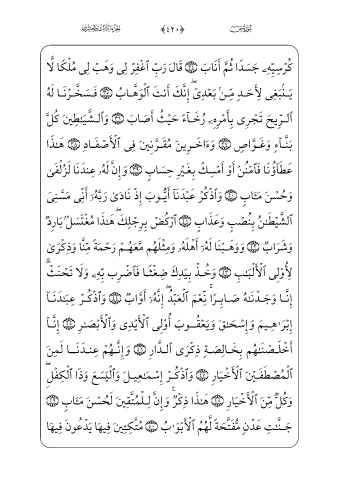 سُورَةُ صٓ ﴿٤٢٠﴾ الجزء الثالث والعشرون
كُرْسِيِّهِۦ جَسَدًا ثُمَّ أَنَابَ ۝ قَالَ رَبِّ ٱغْفِرْ لِى وَهَبْ لِى مُلْكًا لَّا
يَنۢبَغِى لِأَحَدٍ مِّنۢ بَعْدِىٓ ۖ إِنَّكَ أَنتَ ٱلْوَهَّابُ ۝ فَسَخَّرْنَا لَهُ
ٱلرِّيحَ تَجْرِى بِأَمْرِهِۦ رُخَآءً حَيْثُ أَصَابَ ۝ وَٱلشَّيَٰطِينَ كُلَّ
بَنَّآءٍ وَغَوَّاصٍ ۝ وَءَاخَرِينَ مُقَرَّنِينَ فِى ٱلْأَصْفَادِ ۝ هَٰذَا
عَطَآؤُنَا فَٱمْنُنْ أَوْ أَمْسِكْ بِغَيْرِ حِسَابٍ ۝ وَإِنَّ لَهُۥ عِندَنَا لَزُلْفَىٰ
وَحُسْنَ مَـَٔابٍ ۝ وَٱذْكُرْ عَبْدَنَآ أَيُّوبَ إِذْ نَادَىٰ رَبَّهُۥٓ أَنِّى مَسَّنِىَ
ٱلشَّيْطَٰنُ بِنُصْبٍ وَعَذَابٍ ۝ ٱرْكُضْ بِرِجْلِكَ ۖ هَٰذَا مُغْتَسَلٌۢ بَارِدٌ
وَشَرَابٌ ۝ وَوَهَبْنَا لَهُۥٓ أَهْلَهُۥ وَمِثْلَهُم مَّعَهُمْ رَحْمَةً مِّنَّا وَذِكْرَىٰ
لِأُو۟لِى ٱلْأَلْبَٰبِ ۝ وَخُذْ بِيَدِكَ ضِغْثًا فَٱضْرِب بِّهِۦ وَلَا تَحْنَثْ ۗ
إِنَّا وَجَدْنَٰهُ صَابِرًا ۚ نِّعْمَ ٱلْعَبْدُ ۖ إِنَّهُۥٓ أَوَّابٌ ۝ وَٱذْكُرْ عِبَٰدَنَآ
إِبْرَٰهِيمَ وَإِسْحَٰقَ وَيَعْقُوبَ أُو۟لِى ٱلْأَيْدِى وَٱلْأَبْصَٰرِ ۝ إِنَّآ
أَخْلَصْنَٰهُم بِخَالِصَةٍ ذِكْرَى ٱلدَّارِ ۝ وَإِنَّهُمْ عِندَنَا لَمِنَ
ٱلْمُصْطَفَيْنَ ٱلْأَخْيَارِ ۝ وَٱذْكُرْ إِسْمَٰعِيلَ وَٱلْيَسَعَ وَذَا ٱلْكِفْلِ ۖ
وَكُلٌّ مِّنَ ٱلْأَخْيَارِ ۝ هَٰذَا ذِكْرٌ ۚ وَإِنَّ لِلْمُتَّقِينَ لَحُسْنَ مَـَٔابٍ ۝
جَنَّٰتِ عَدْنٍ مُّفَتَّحَةً لَّهُمُ ٱلْأَبْوَٰبُ ۝ مُتَّكِـِٔينَ فِيهَا يَدْعُونَ فِيهَا